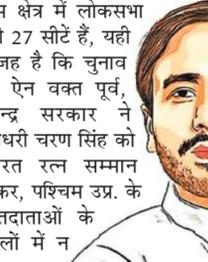 स क्षेत्र में लोकसभा
ी 27 सीटें हैं, यही
जह है कि चुनाव
ऐन वक्त पूर्व,
न्द्र सरकार ने
धरी चरण सिंह को
रत रत्न सम्मान
कर, पश्चिम उप्र. के
तदाताओं के
लों में न